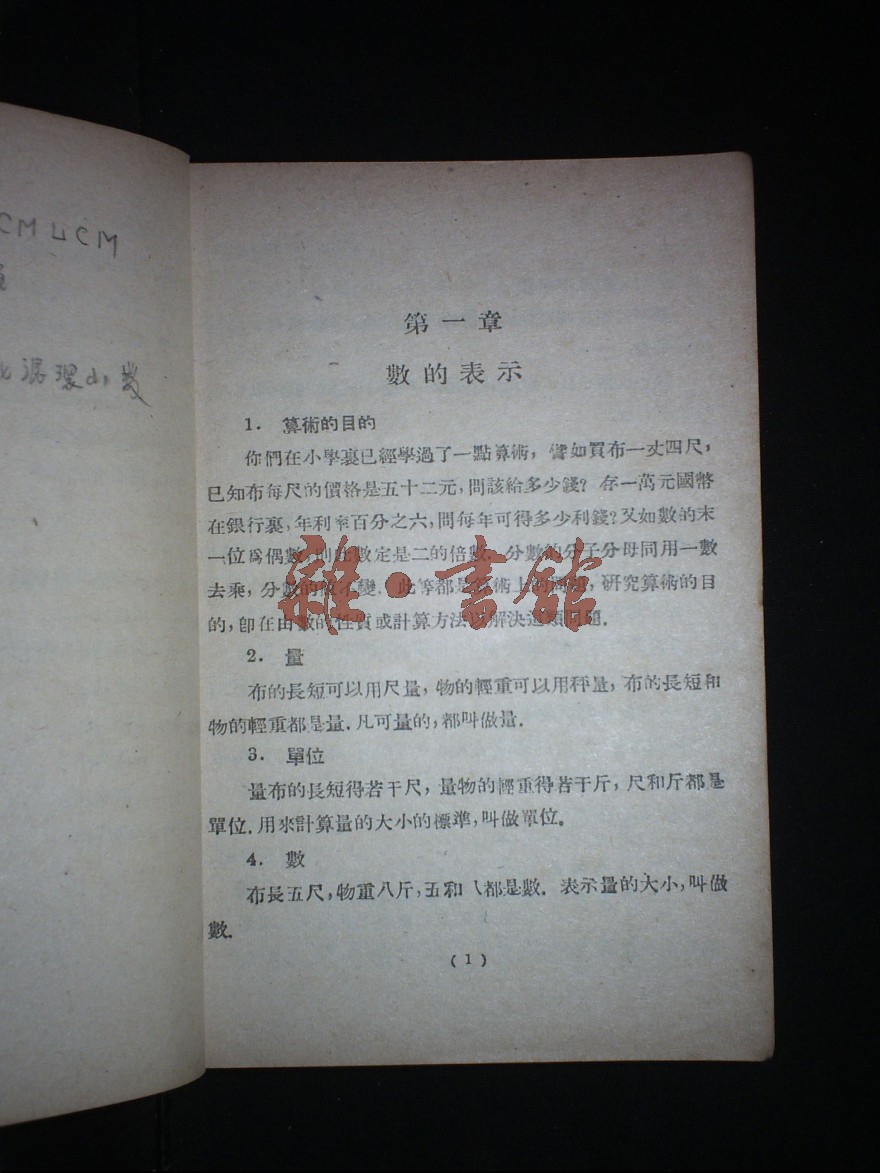 CM LCM
第一章
數的表示
1. 算術的目的
你們在小學裏已經學過了一點算術，譬如買布一丈四尺，
已知布每尺的價格是五十二元，問該給多少錢？存一萬元國幣
在銀行裏，年利率百分之六，問每年可得多少利錢？又如數的末
一位爲偶數，則此數定是二的倍數．分數的分子分母同用一數
去乘，分數的值不變．此等都是算術上的問題，研究算術的目
的，卽在由數的性質或計算方法以解決這類問題．
2. 量
布的長短可以用尺量，物的輕重可以用秤量，布的長短和
物的輕重都是量．凡可量的，都叫做量．
3. 單位
量布的長短得若干尺，量物的輕重得若干斤，尺和斤都是
單位．用來計算量的大小的標準，叫做單位。
4. 數
布長五尺，物重八斤，五和八都是數．表示量的大小，叫做
數．
(1)
雜·書館